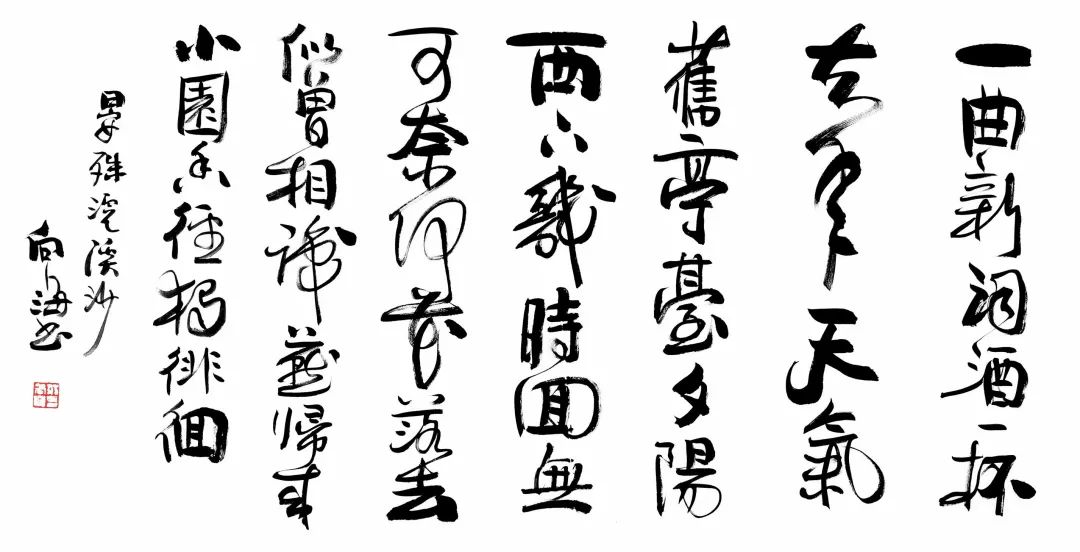 一曲新詞酒一杯
去年天氣
舊亭臺夕陽
西下幾時回無
可奈何花落去
似曾相識燕歸來
小園香徑獨徘徊
晏殊浣溪沙
向海書